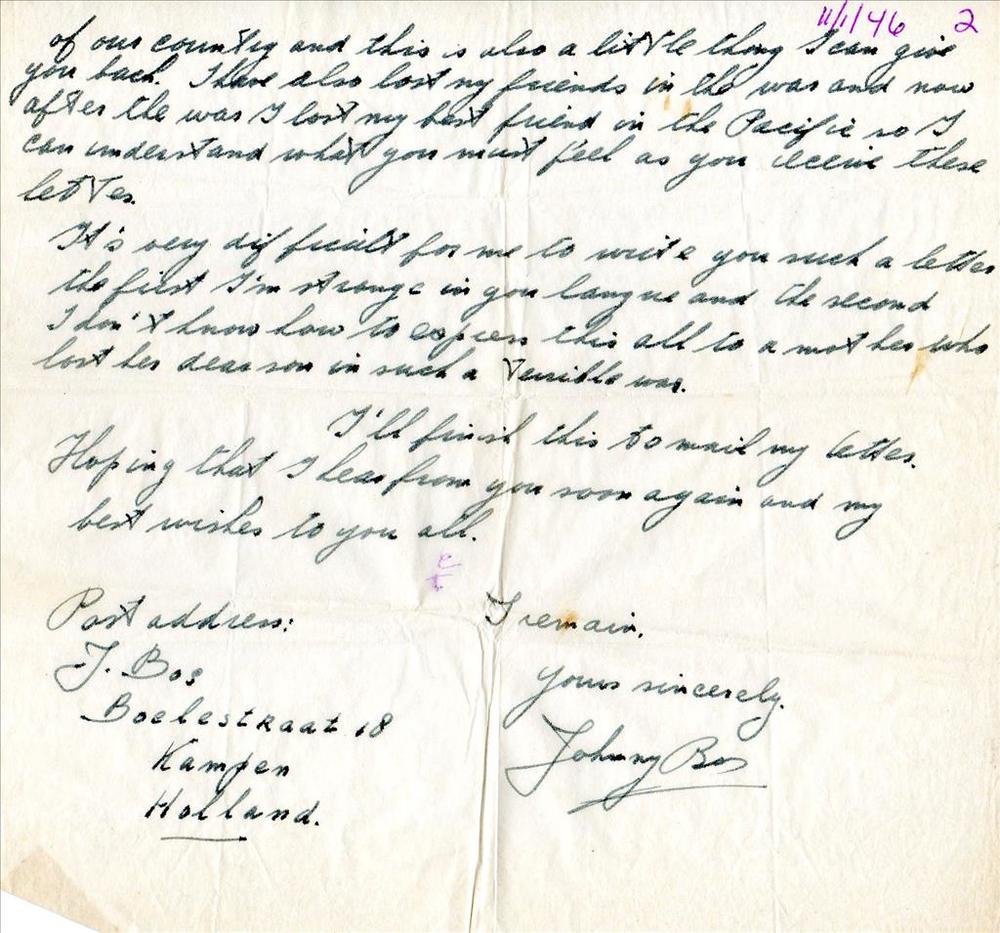 11/1/46 2
of our country and this is also a little thing I can give
you back. I have also lost my friends in the war and now
after the war I lost my best friend in the Pacific so I
can understand what you must feel as you receive these
letter.
It's very difficult for me to write you such a letter
the first I'm strange in you langue and the second
I don't know how to express this all to a mother who
lost her dear son in such a terrible war.
I'll finish this to mail my letter.
Hoping that I hear from you soon again and my
best wishes to you all.
Post address: I remain.
J. Bos Yours sincerely.
Boelestraat 18 Johnny Bos
Kampen
Holland.